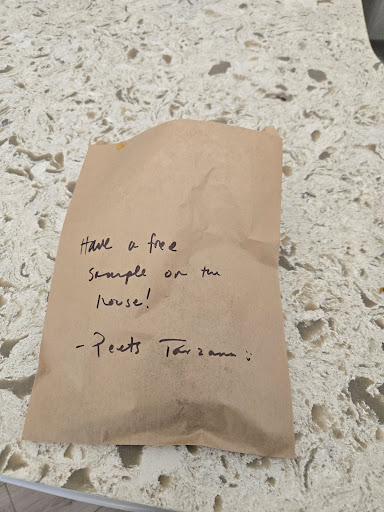 Have a free
sample on the
house!
- Peets Tarzana :)